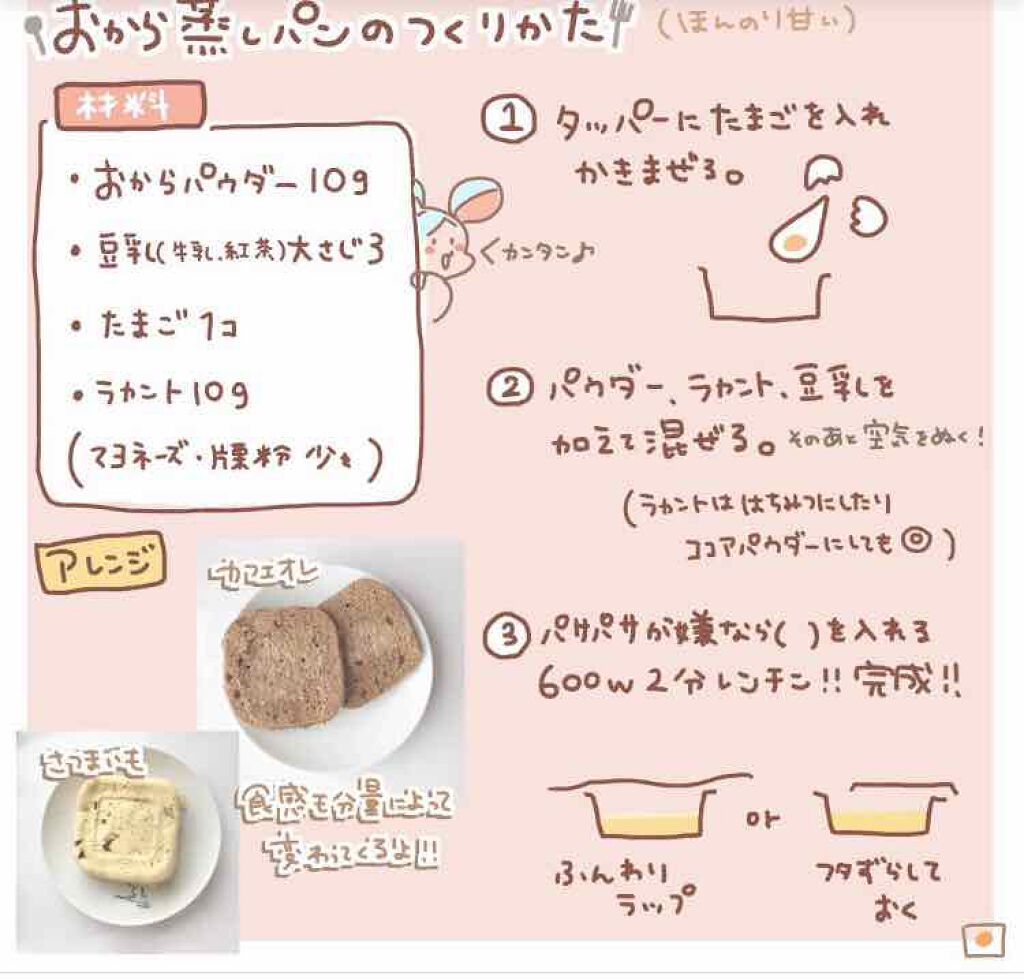 おから蒸しパンのつくりかた
(ほんのり甘い)
材料
・おからパウダー10g
・豆乳(牛乳、紅茶)大さじ3
・たまご1コ
・ラカント10g
(マヨネーズ・片栗粉 少々)
カンタン♪
① タッパーにたまごを入れ
かきまぜる。
② パウダー、ラカント、豆乳を
加えて混ぜる。そのあと空気をぬく!
(ラカントははちみつにしたり
ココアパウダーにしても◎)
③ パサパサが嫌なら( )を入れる
600w2分レンチン!!完成!!
ふんわり
ラップ
or
フタずらして
おく
アレンジ
カフェオレ
さつまいも
食感も分量によって
変わってくるよ!!